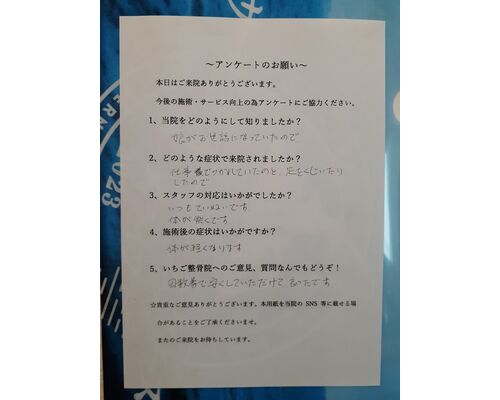 ～アンケートのお願い～
本日はご来院ありがとうございます。
今後の施術・サービス向上の為アンケートにご協力ください。
1、当院をどのようにして知りましたか？
娘がお世話になっていたので
2、どのような症状で来院されましたか？
仕事でつかれていたのと、足をくじいたり
したので
3、スタッフの対応はいかがでしたか？
いつもていねいです
体が軽くです
4、施術後の症状はいかがですか？
体が軽くなります
5、いちご整骨院へのご意見、質問なんでもどうぞ！
回数券で安くしていただけて
☆貴重なご意見ありがとうございます。本用紙を当院の SNS 等に載せる場
合があることをご了承くださいませ。
またのご来院をお待ちしています。
2023